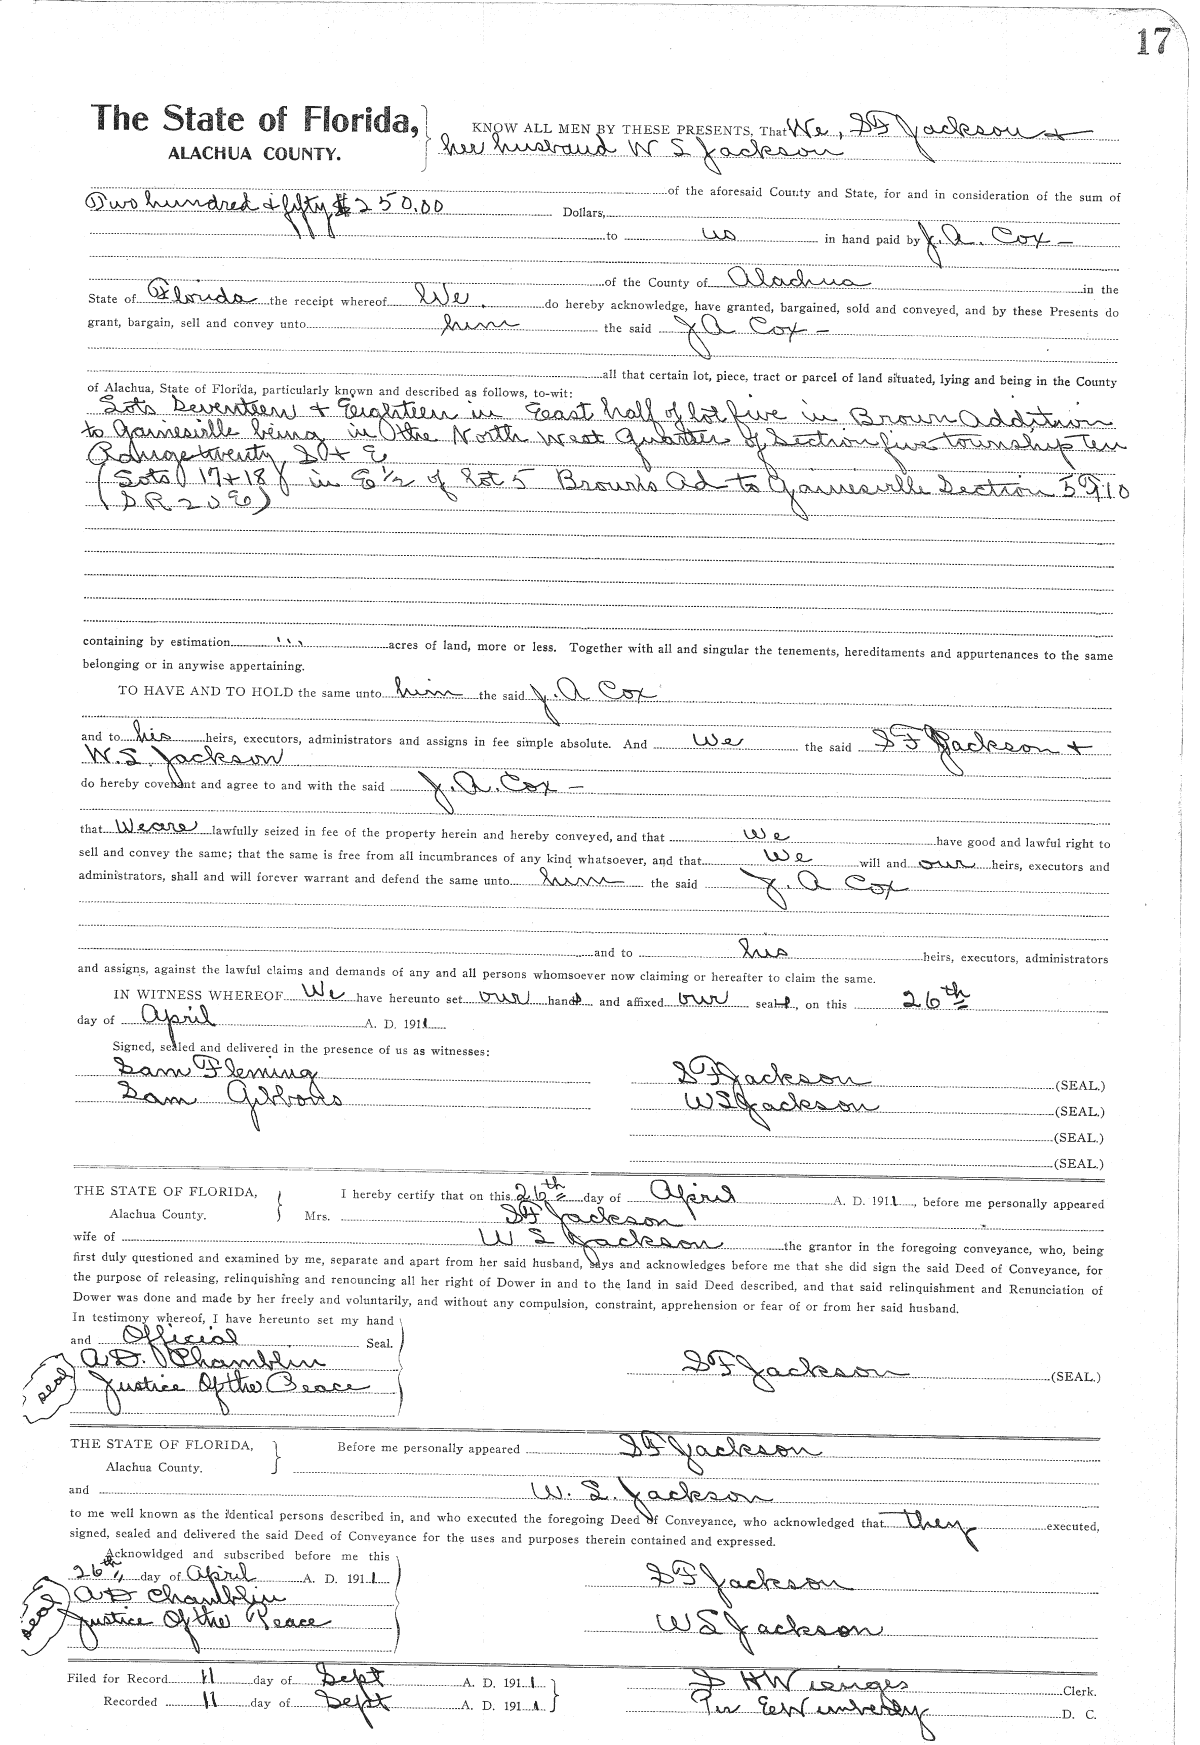 17
The State of Florida,
ALACHUA COUNTY.
KNOW ALL MEN BY THESE PRESENTS, That We, S F Jackson +
her husband W S Jackson
of the aforesaid County and State, for and in consideration of the sum of
Two hundred & fifty $250.00 Dollars,
to us in hand paid by J. A. Cox –
of the County of Alachua in the
State of Florida the receipt whereof We do hereby acknowledge, have granted, bargained, sold and conveyed, and by these Presents do
grant, bargain, sell and convey unto him the said J A Cox –
all that certain lot, piece, tract or parcel of land situated, lying and being in the County
of Alachua, State of Florida, particularly known and described as follows, to-wit:
Lots Seventeen + Eighteen in East half of lot five in Brown Addition
to Gainesville being in the North West Quarter of Section five township Ten
Range twenty S + E
(Lots 17+18) in E 1/2 of Lot 5 Browns Ad to Gainesville Section 5 T 10
(S R 20 E)
containing by estimation acres of land, more or less. Together with all and singular the tenements, hereditaments and appurtenances to the same
belonging or in anywise appertaining.
TO HAVE AND TO HOLD the same unto him the said J. A Cox
and to his heirs, executors, administrators and assigns in fee simple absolute. And We the said S F Jackson +
W. S. Jackson
do hereby covenant and agree to and with the said J. A. Cox –
that We are lawfully seized in fee of the property herein and hereby conveyed, and that we have good and lawful right to
sell and convey the same; that the same is free from all incumbrances of any kind whatsoever, and that We will and our heirs, executors and
administrators, shall and will forever warrant and defend the same unto him the said J. A Cox
and to his heirs, executors, administrators
and assigns, against the lawful claims and demands of any and all persons whomsoever now claiming or hereafter to claim the same.
IN WITNESS WHEREOF We have hereunto set our hands and affixed our seals, on this 26th
day of April A. D. 1911
Signed, sealed and delivered in the presence of us as witnesses:
Sam Fleming S F Jackson (SEAL.)
Sam Gibbons W S Jackson (SEAL.)
(SEAL.)
(SEAL.)
THE STATE OF FLORIDA, I hereby certify that on this 26th day of April A. D. 1911, before me personally appeared
Alachua County. Mrs. S F Jackson
wife of W S Jackson the grantor in the foregoing conveyance, who, being
first duly questioned and examined by me, separate and apart from her said husband, says and acknowledges before me that she did sign the said Deed of Conveyance, for
the purpose of releasing, relinquishing and renouncing all her right of Dower in and to the land in said Deed described, and that said relinquishment and Renunciation of
Dower was done and made by her freely and voluntarily, and without any compulsion, constraint, apprehension or fear of or from her said husband.
In testimony whereof, I have hereunto set my hand
and Official Seal.
A.D. Chamblin S F Jackson (SEAL.)
seal Justice Of the Peace
THE STATE OF FLORIDA, Before me personally appeared S F Jackson
Alachua County.
and W. S. Jackson
to me well known as the identical persons described in, and who executed the foregoing Deed of Conveyance, who acknowledged that they executed,
signed, sealed and delivered the said Deed of Conveyance for the uses and purposes therein contained and expressed.
Acknowldged and subscribed before me this
26th day of April A. D. 1911 S F Jackson
A D Chamblin
seal Justice Of the Peace W S Jackson
Filed for Record 11 day of Sept A. D. 1911 S H Wienges Clerk.
Recorded 11 day of Sept A. D. 1911 Per E Wimberly D. C.